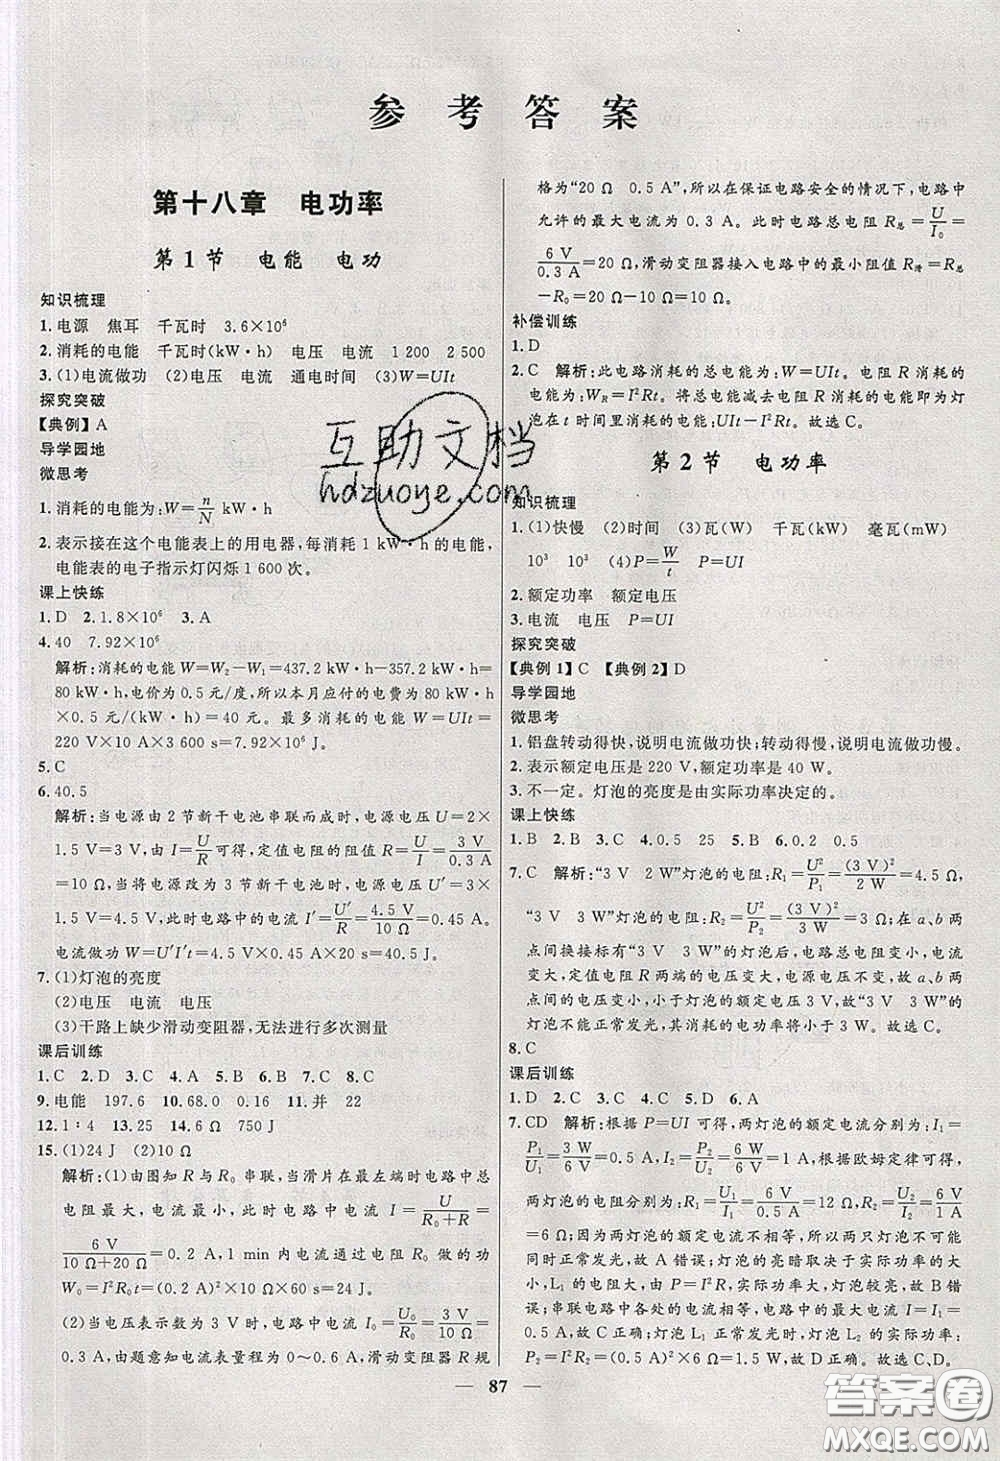 参考答案
第十八章 电功率
第1节 电能 电功
知识梳理
1.电源 焦耳 千瓦时 3.6×10⁶
2.消耗的电能 千瓦时(kW·h) 电压 电流 1 200 2 500
3.(1)电流做功 (2)电压 电流 通电时间 (3)W=UIt
探究突破
【典例】A
导学园地
微思考
1.消耗的电能为:W=n/N kW·h
2.表示接在这个电能表上的用电器,每消耗1 kW·h的电能,
电能表的电子指示灯闪烁1 600次。
课上快练
1.D 2.1.8×10⁶ 3.A
4.40 7.92×10⁶
解析:消耗的电能W=W₂-W₁=437.2 kW·h-357.2 kW·h=
80 kW·h,电价为0.5元/度,所以本月应付的电费为80 kW·h
×0.5元/(kW·h)=40元。最多消耗的电能W=UIt=
220 V×10 A×3 600 s=7.92×10⁶ J。
5.C
6.40.5
解析:当电源由2节新干电池串联而成时,电源电压U=2×
1.5 V=3 V,由I=U/R可得,定值电阻的阻值R=U/I=3 V/0.3 A
=10 Ω,当将电源改为3节新干电池时,电源电压U′=3×
1.5 V=4.5 V,此时电路中的电流I′=U′/R=4.5 V/10 Ω=0.45 A。
电流做功W=U′I′t=4.5 V×0.45 A×20 s=40.5 J。
7.(1)灯泡的亮度
(2)电压 电流 电压
(3)干路上缺少滑动变阻器,无法进行多次测量
课后训练
1.C 2.D 3.C 4.A 5.B 6.C 7.D 8.C
9.电能 197.6 10.68.0 0.16 11.并 22
12.1∶4 13.25 14.6 Ω 750 J
15.(1)24 J (2)10 Ω
解析:(1)由图知R与R₀串联,当滑片在最左端时电路中总
电阻最大,电流最小,此时电路中的电流I=U/(R₀+R)=
6 V/(10 Ω+20 Ω)=0.2 A,1 min内电流通过电阻R₀做的功
W₀=I²R₀t=(0.2 A)²×10 Ω×60 s=24 J。
(2)当电压表示数为3 V时,电路中的电流I₀=U₀/R₀=3 V/10 Ω=
0.3 A,由题意知电流表量程为0~0.6 A,滑动变阻器R规
格为“20 Ω 0.5 A”,所以在保证电路安全的情况下,电路中
允许的最大电流为0.3 A。此时电路总电阻R总=U/I₀=
6 V/0.3 A=20 Ω,滑动变阻器接入电路中的最小阻值R滑=R总
-R₀=20 Ω-10 Ω=10 Ω。
补偿训练
1.D
2.C 解析:此电路消耗的总电能为:W=UIt。电阻R消耗的
电能为:W_R=I²Rt。将总电能减去电阻R消耗的电能即为灯
泡在t时间里消耗的电能:UIt-I²Rt。故选C。
第2节 电功率
知识梳理
1.(1)快慢 (2)时间 (3)瓦(W) 千瓦(kW) 毫瓦(mW)
10³ 10³ (4)P=W/t P=UI
2.额定功率 额定电压
3.电流 电压 P=UI
探究突破
【典例1】C 【典例2】D
导学园地
微思考
1.铝盘转动得快,说明电流做功快;转动得慢,说明电流做功慢。
2.表示额定电压是220 V,额定功率是40 W。
3.不一定。灯泡的亮度是由实际功率决定的。
课上快练
1.B 2.B 3.C 4.0.5 25 5.B 6.0.2 0.5
7.C 解析:“3 V 2 W”灯泡的电阻:R₁=U²/P₁=(3 V)²/2 W=4.5 Ω,
“3 V 3 W”灯泡的电阻:R₂=U²/P₂=(3 V)²/3 W=3 Ω;在a、b两
点间换接标有“3 V 3 W”的灯泡后,电路总电阻变小,电流
变大,定值电阻R两端的电压变大,电源电压不变,故a、b两
点间的电压变小,小于灯泡的额定电压,故“3 V 3 W”的灯
泡不能正常发光,其消耗的电功率将小于3 W。故选C。
8.C
课后训练
1.D 2.B 3.C 4.C 5.D 6.A
7.CD 解析:根据P=UI可得,两灯泡的额定电流分别为:I₁=
P₁/U₁=3 W/6 V=0.5 A,I₂=P₂/U₂=6 W/6 V=1 A;根据欧姆定律可得,
两灯泡的电阻分别为:R₁=U₁/I₁=6 V/0.5 A=12 Ω,R₂=U₂/I₂=6 V/1 A
=6 Ω;因为两灯泡的额定电流不相等,所以串联时不可能
同时正常发光,故A错误;灯泡的亮暗取决于实际功率的大
小,L₁的电阻大,根据P=I²R,实际功率大,灯泡较亮,故B错
误;串联电路中各处的电流相等,电路中的电流I=I₁=
0.5 A,此时灯泡L₁正常发光,故C正确;灯泡L₂的实际功率
P₂=I²R₂=(0.5 A)²×6 Ω=1.5 W,故D正确。故选C、D。
87
互助文档
hdzuoye.com
答案圈
MXQE.COM